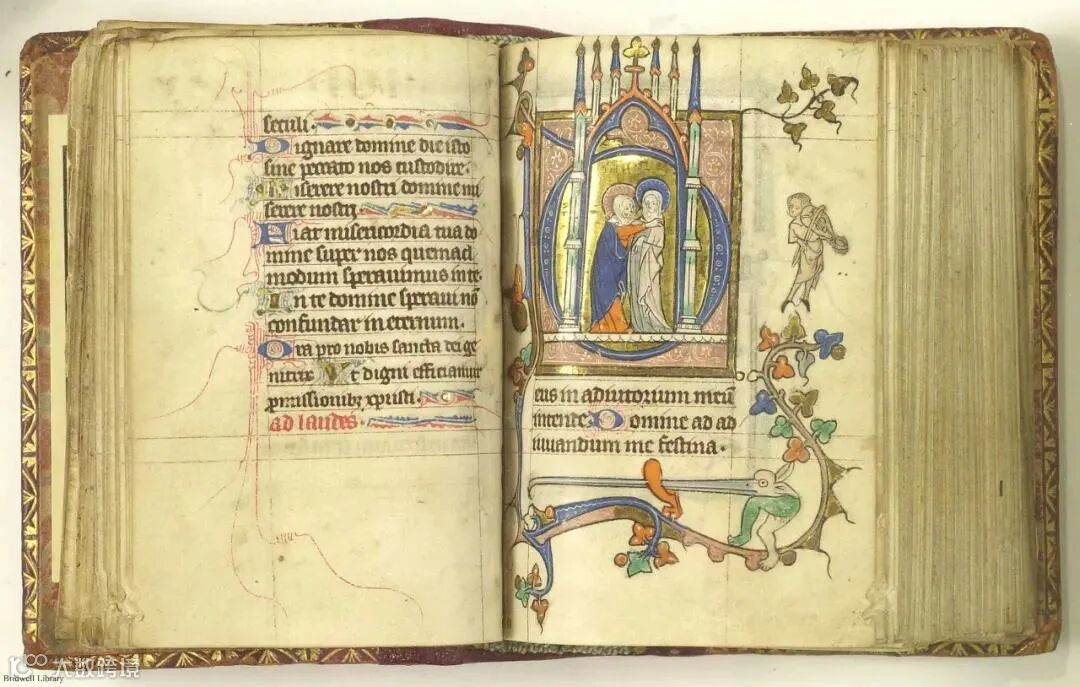 seculi.
Dignare domine die isto
sine peccato nos custodire.
Miserere nostri domine mi
serere nostri.
Fiat misericordia tua do
mine super nos quemad
modum speravimus inte.
In te domine speravi nō
confundar in eternum.
Ora pro nobis sancta dei ge
nitrix Vt digni efficiamur
promissionibꝫ xpisti.
ad laudes.
eus in adiutorium meū
intende Domine ad ad
iuuandum me festina.
大数跨境
Bridwell Library